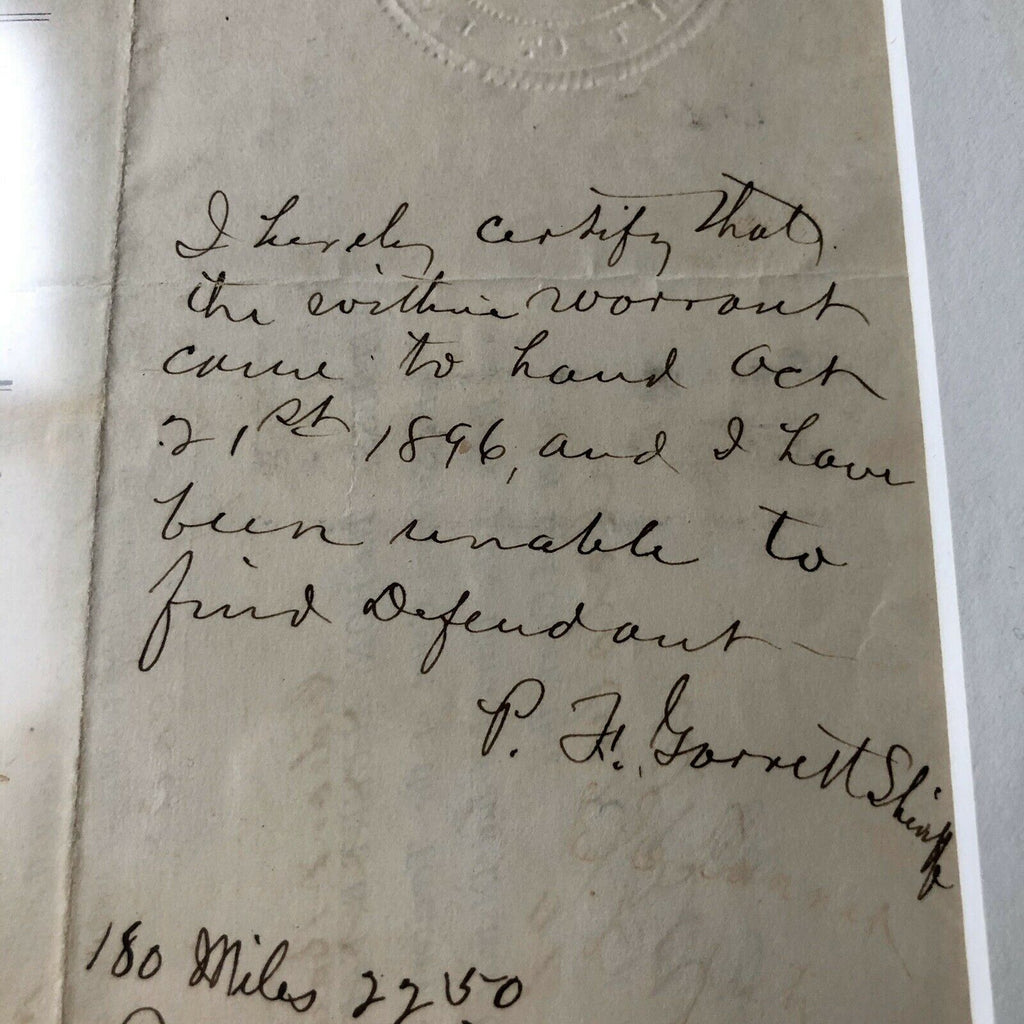 I hereby certify that
the within warrant
came to hand Oct
21st 1896, and I have
been unable to
find Defendant
P. F. Garrett Sheriff
180 Miles 22 50